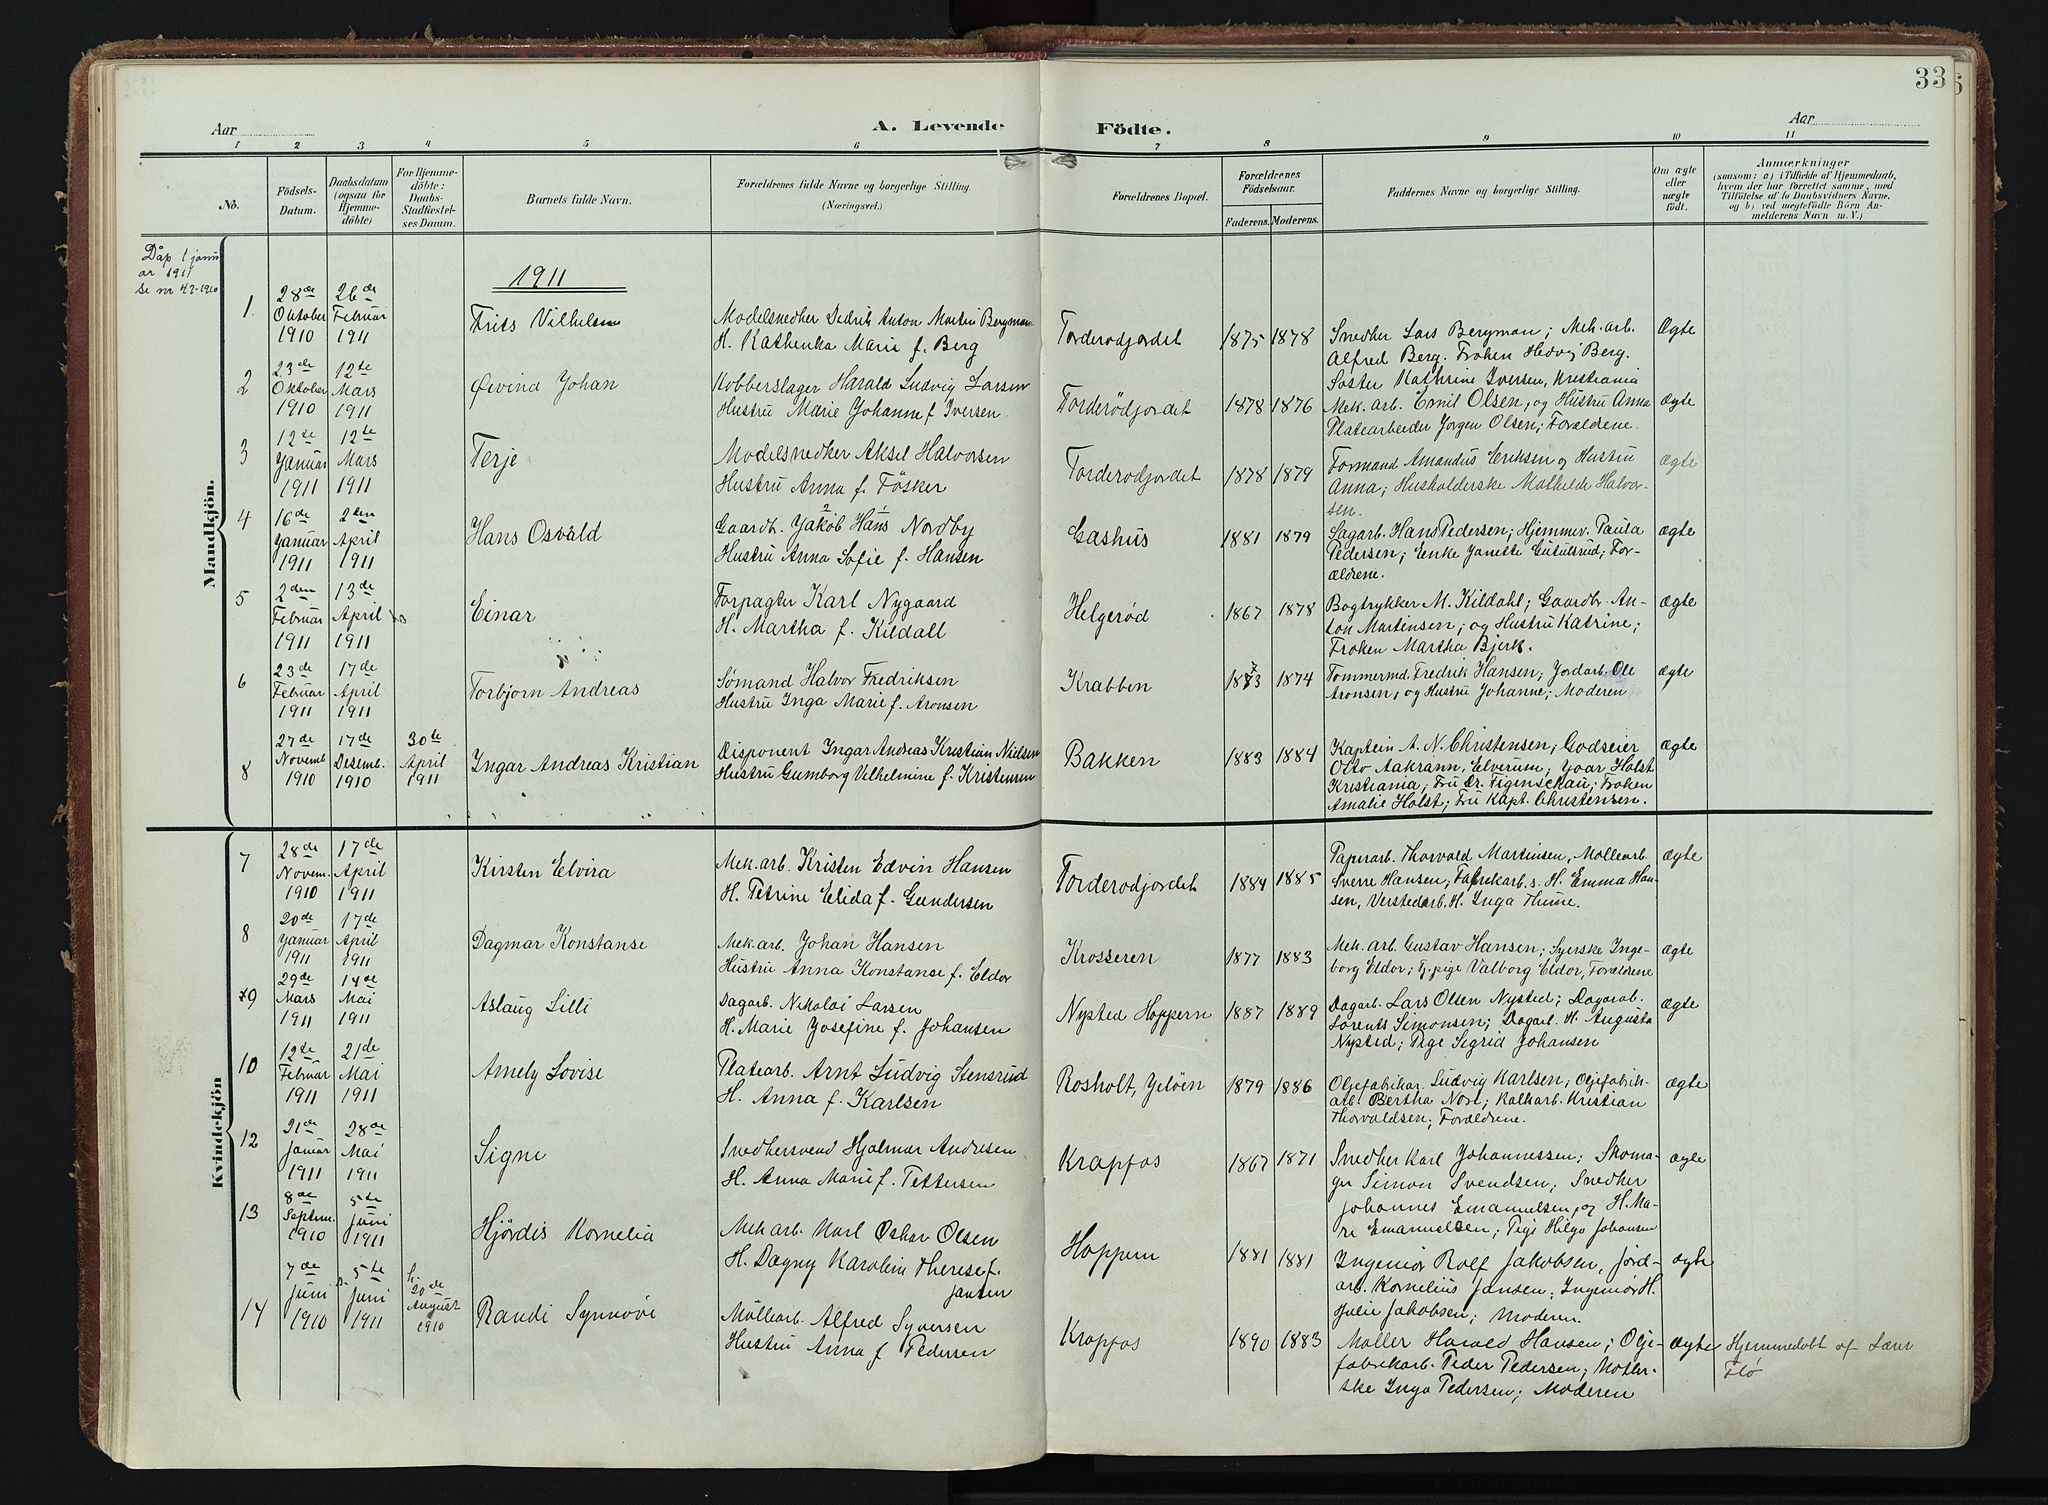 33
Aar
A. Levende Födte.
Aar
1 2 3 4 5 6 7 8 9 10 11
No.
Födsels-
Datum.
Daabsdatum
(ogsaa for
Hjemme-
döbte)
For Hjemme-
döbte:
Daabs-
Stadfæstel-
ses Datum.
Barnets fulde Navn.
Forældrenes fulde Navne og borgerlige Stilling.
(Næringsvei.)
Forældrenes Bopæl.
Forældrenes
Födselsaar.
Faderens. Moderens.
Faddernes Navne og borgerlige Stilling.
Om ægte
eller
uægte
födt.
Anmærkninger
(saasom: a) i Tilfælde af Hjemmedaab,
hvem der har forrettet samme, med
Tilföielse af to Daabsvidners Navne,
og b) ved uægtefödte Börn An-
melderens Navn m. V.)
Dåp 1 janu
ar 1911
se nr 47-1910
1911
Mandkjön.
1.
28de
Oktober
1910
26de
Februar
1911
Frits Vilhelm
Modelsnedker Didrik Anton Martin Bergman
H. Kathinka Marie f. Berg
Torderødjordet
1875
1878
Snedker Lars Bergman; Mek. arb.
Alfred Berg. Frøken Hedvig Berg.
Ægte
2
23de
Oktober
1910
12te
Mars
1911
Øivind Johan
Kobberslager Harald Ludvig Larsen
Hustru Marie Johanne f Iversen
Torderødjordet
1878
1876
Søster Kathrine Iversen, Kristiania
Mek. arb. Emil Olsen, og Hustru Anna
Platearbeider Jørgen Olsen; Forældrene.
ægte
3
12te
Januar
1911
12te
Mars
1911
Terje
Modelsnedker Aksel Halvorsen
Hustru Anna f. Fösker
Torderodjordet
1878
1879
Formand Amandus Eriksen og Hustru
Anna; Husholderske Mathilde Halvor-
sen.
ægte
4
16de
Januar
1911
2den
April
1911
Hans Osvald
2 1
Gaardb. Jakob Hans Nordby
Hustru Anna Sofie f. Hansen
Gashus
1881
1879
Sagarb. Hans Pedersen; Hjemmev. Paula
Pedersen; Enke Janette; For-
ældrene.
ægte
5
2den
Februar
1911
13de
April
1911
Einar
Forpagter Karl Nygaard
H. Martha f. Kildall
Helgerød
1867
1878
Bogtrykker M. Kildahl; Gaardbr. An-
ton Martinsen; og Hustru Katrine;
Frøken Martha Bjerk.
ægte
6
23de
Februar
1911
17de
April
1911
Torbjorn Andreas
Sømand Halvor Fredriksen
Hustru Inga Marie f. Aronsen
Krabben
1873
1874
Tommermd. Fredrik Hansen; Jordarb. Ole
Aronsen, og Hustru Johanne; Moderen
ægte
8
27de
Novemb
1910
17de
Desemb.
1910
30te
April
1911
Ingar Andreas Kristian
Disponent Ingar Andreas Kristian Nielsen
Hustru Gumborg Vilhelmine f. Kristensen
Bakken
1883
1884
Kaptein A. N. Christensen; Godseier
Otto Aakrann, Elverum; Yvar Holst
Kristiania; Fru Dr. Figenschau; Frøken
Amalie Holst; Fru Kapt. Christensen.
ægte
Kvindekjön
7
28de
Novem.
1910
17de
April
1911
Kirsten Elvira
Mek. arb. Kristen Edvin Hansen
H. Petrine Elida f. Gundersen
Torderodjordet
1884
1885
Papirarb. Thorvald Martinsen, Møllearb.
Sverre Hansen; Fabrikarb.s. H. Emma Han-
sen, Verstedarb. H. Inga Thune.
ægte
8
20de
Januar
1911
17de
April
1911
Dagmar Konstanse
Mek. arb. Johan Hansen
Hustru Anna Konstanse f. Eldor
Krosseren
1877
1883
Mek. arb. Gustav Hansen; Syerske Inge-
borg Eldor; Tj.pige Valborg Eldor, Forældrene
ægte
9
29de
Mars
1911
14de
Mai
1911
Aslaug Lilli
Dagarb. Nikolai Larsen
H. Marie Josefine f. Johansen
Nysted Hoppern
1887
1889
Dagarb. Lars Olsen Nysted; Dagarb.
Lorents Simonsen; Dagarb. H. Augusta
Nysted; Pige Sigrid Johansen
ægte
10
12te
Februar
1911
21de
Mai
1911
Amely Lovise
Platearb. Arnt Ludvig Stensrud
H. Anna f. Karlsen
Rosholt, Jeløen
1879
1886
Oljefabrikar. Ludvig Karlsen; Oljefabrik-
arb. Bertha Nore; Kalkarb. Kristian
Thorvaldsen; Forældrene.
ægte
12
21de
Januar
1911
28de
Mai
1911
Signe
Snedkersvend Hjalmar Andresen
H. Anna Marie f. Pettersen
Krapfos
1867
1871
Snedker Karl Johannessen; Skoma-
ger Simon Svendsen; Snedker
Johannes Emanuelsen, og H. Ma-
rie Emanuelsen; Pige Helga Johansen
ægte
13
8de
Septem.
1910
5te
Juni
1911
Hjördis Kornelia
Mek arb. Karl Oskar Olsen
H. Dagny Karoline Therese f.
Jansen
Hoppern
1881
1881
Ingeniør Rolf Jakobsen, Jord-
arb. Kornelius Jansen; Ingeniør H.
Julie Jakobsen; Moderen.
ægte
14
7de
Juni
1910
5te
Juni
1911
h.
20de
August
1910
Randi Synnöve
Möllearb. Alfred Syversen
Hustru Anna f Pedersen
Krapfos
1890
1883
Møller Harald Hansen; Olje-
fabrikarb. Peder Pedersen; Møller-
ske Inga Pedersen; Moderen
ægte
Hjemmedøbt af Lærer
Flø